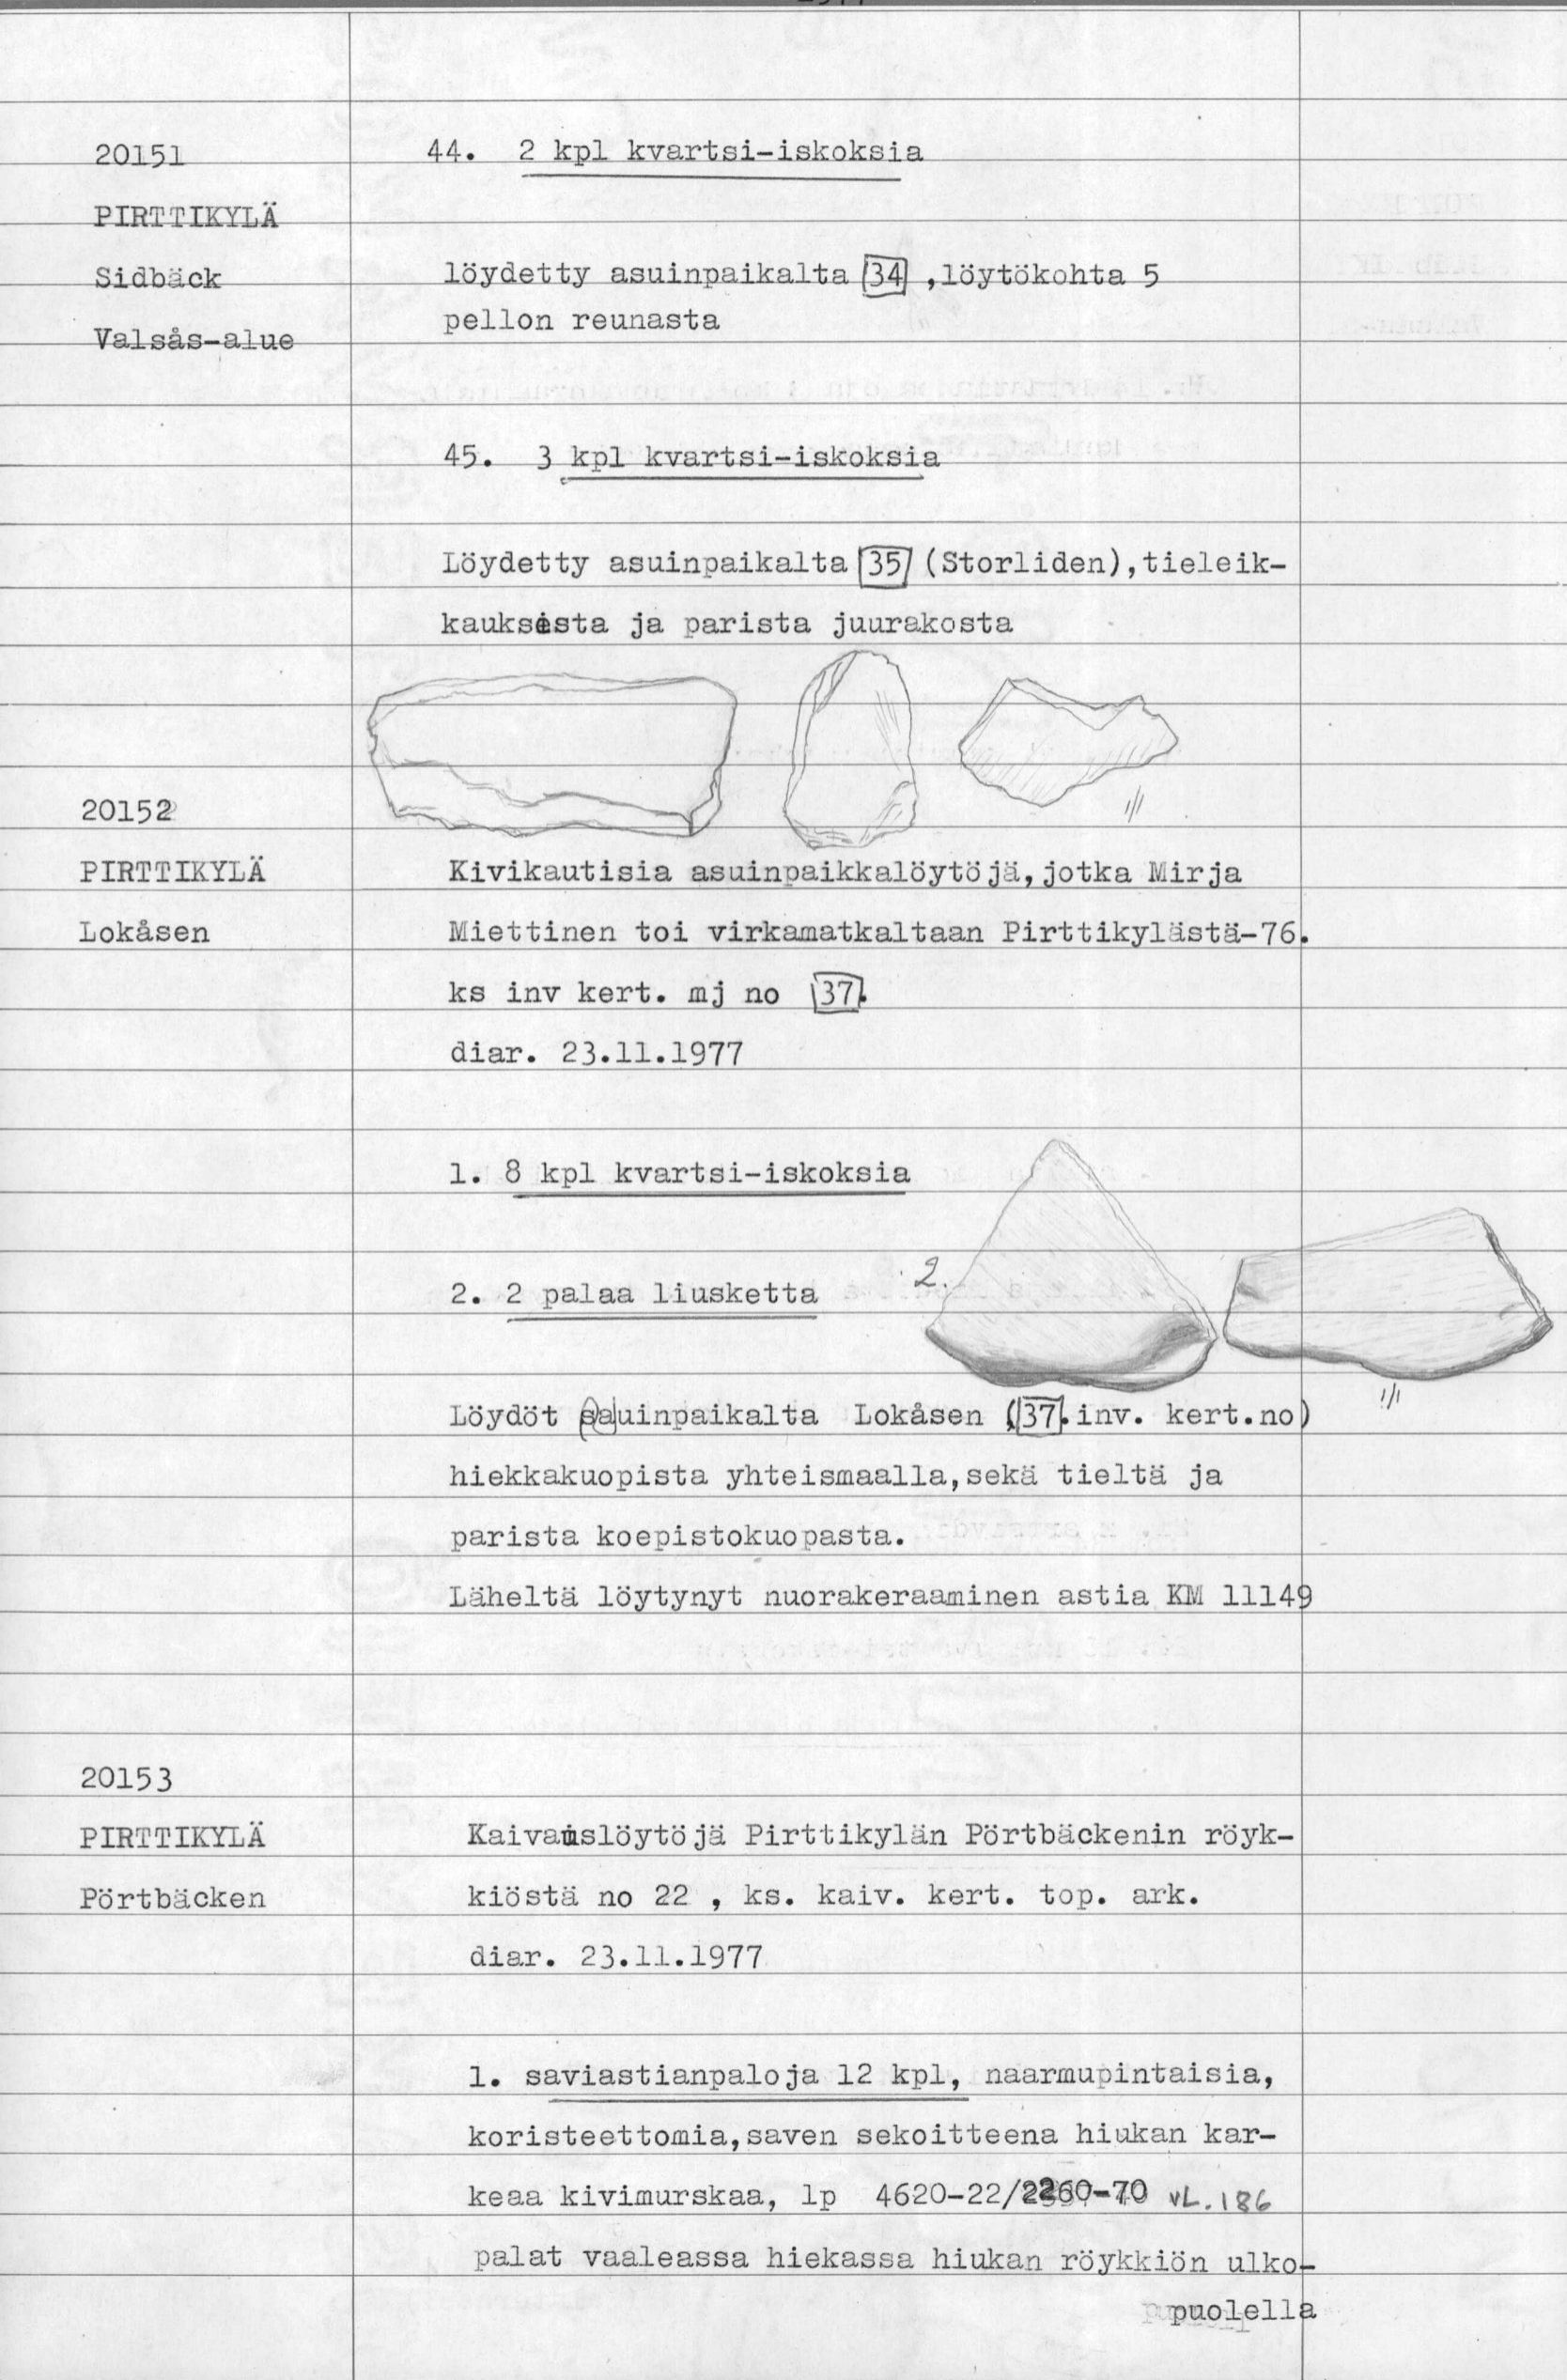 20151
44. 2 kpl kvartsi-iskoksia
PIRTTIKYLÄ
Sidbäck
löydetty asuinpaikalta 34 ,löytökohta 5
pellon reunasta
Valsås-alue
45. 3 kpl kvartsi-iskoksia
Löydetty asuinpaikalta 35 (Storliden),tieleik-
kauksesta ja parista juurakosta
1/1
20152
PIRTTIKYLÄ
Kivikautisia asuinpaikkalöytöjä,jotka Mirja
Lokåsen
Miettinen toi virkamatkaltaan Pirttikylästä-76.
ks inv kert. mj no 37.
diar. 23.11.1977
1. 8 kpl kvartsi-iskoksia
2. 2 palaa liusketta
2.
1/1
Löydöt sauinpaikalta Lokåsen (37.inv. kert.no)
hiekkakuopista yhteismaalla,sekä tieltä ja
parista koepistokuopasta.
Läheltä löytynyt nuorakeraaminen astia KM 11149
20153
PIRTTIKYLÄ
Kaivauslöytöjä Pirttikylän Pörtbäckenin röyk-
Pörtbäcken
kiöstä no 22 , ks. kaiv. kert. top. ark.
diar. 23.11.1977
1. saviastianpaloja 12 kpl, naarmupintaisia,
koristeettomia,saven sekoitteena hiukan kar-
keaa kivimurskaa, lp 4620-22/2260-70 VL. 186
palat vaaleassa hiekassa hiukan röykkiön ulko-
puolella